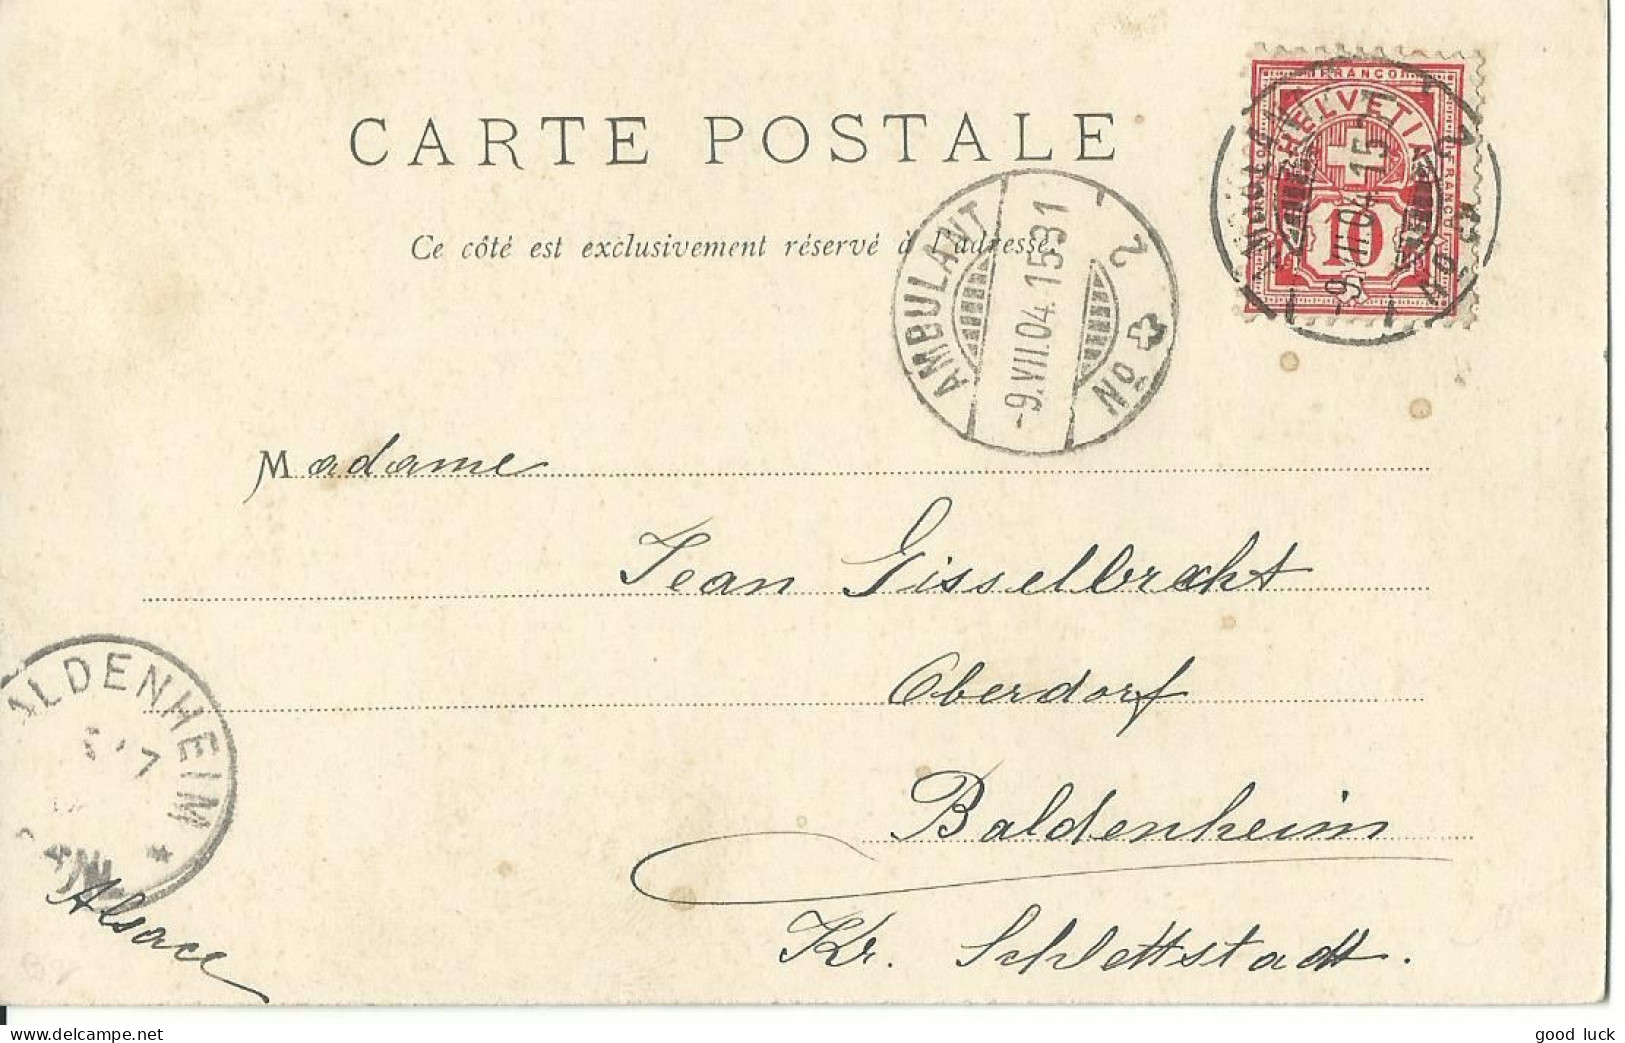 FRANCO
HELVETIA
FRANCO
10
CARTE POSTALE
AMBULANT
-9.VII.04.15-31
No 2
-9.VII.04.15
Ce côté est exclusivement réservé à l'adresse.
Madame
Jean Gisselbrecht
Oberdorf
BALDENHEIM
Baldenheim
Alsace
Kr. Schlettstadt.
good luck